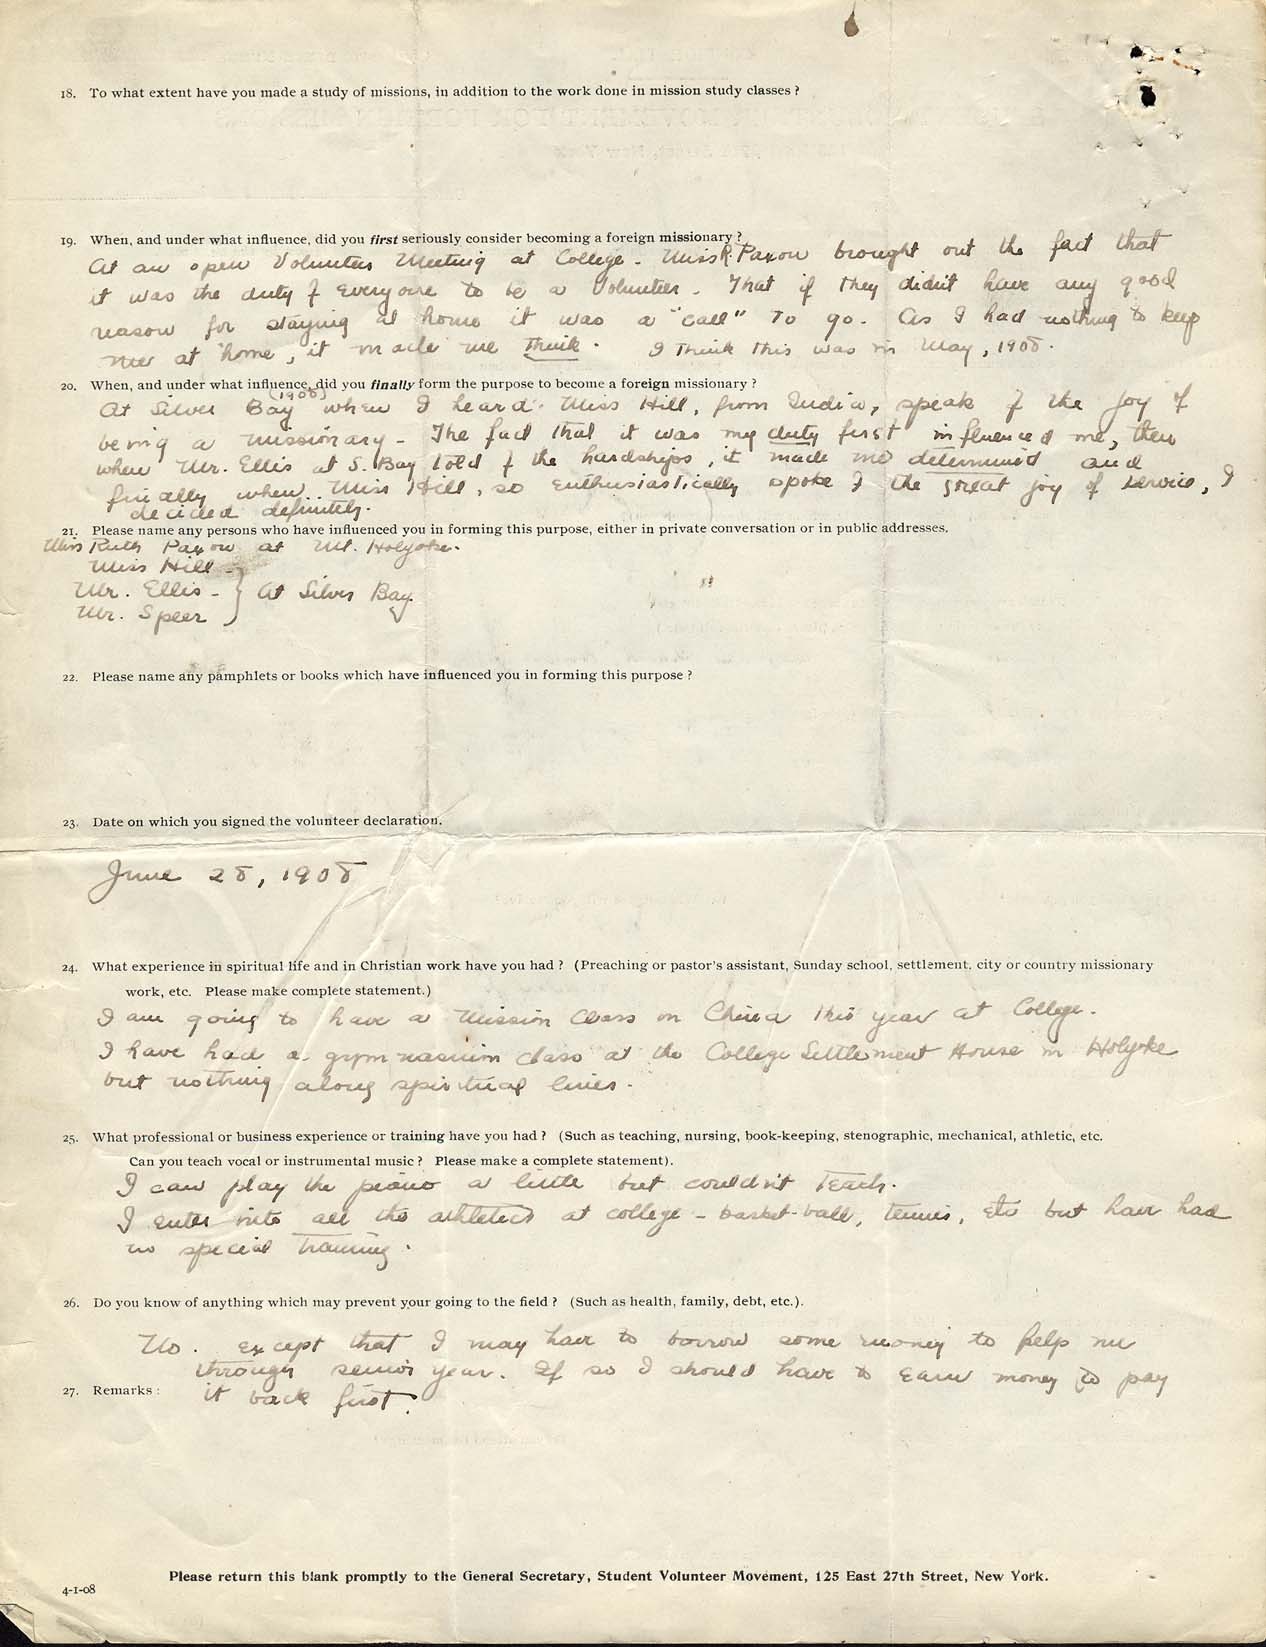 18. To what extent have you made a study of missions, in addition to the work done in mission study classes ?
19. When, and under what influence, did you first seriously consider becoming a foreign missionary ?
At an open Volunteer Meeting at College. Miss R. Paxon brought out the fact that
it was the duty of everyone to be a Volunteer. That if they didn't have any good
reason for staying at home it was a "call" to go. As I had nothing to keep
me at home, it made me think. I think this was in May, 1908.
20. When, and under what influence, did you finally form the purpose to become a foreign missionary ?
(1908)
At Silver Bay when I heard Miss Hill, from India, speak of the joy of
being a missionary - The fact that it was my duty first influenced me, then
when Mr. Ellis at S. Bay told of the hardships, it made me determined and
finally when Miss Hill, so enthusiastically spoke of the great joy of service, I
decided definitely.
21. Please name any persons who have influenced you in forming this purpose, either in private conversation or in public addresses.
Miss Ruth Paxon at Mt. Holyoke.
Miss Hill -
Mr. Ellis - } At Silver Bay
Mr. Speer
22. Please name any pamphlets or books which have influenced you in forming this purpose ?
23. Date on which you signed the volunteer declaration.
June 28, 1908
24. What experience in spiritual life and in Christian work have you had ? (Preaching or pastor's assistant, Sunday school, settlement, city or country missionary
work, etc. Please make complete statement.)
I am going to have a Mission Class on China this year at College.
I have had a gymnasium class at the College Settlement House in Holyoke
but nothing along spiritual lines.
25. What professional or business experience or training have you had ? (Such as teaching, nursing, book-keeping, stenographic, mechanical, athletic, etc.
Can you teach vocal or instrumental music ? Please make a complete statement).
I can play the piano a little but couldn't teach.
I enter into all the athletics at college - basket-ball, tennis, etc but have had
no special training.
26. Do you know of anything which may prevent your going to the field ? (Such as health, family, debt, etc.).
No. except that I may have to borrow some money to help me
through senior year. If so I should have to earn money to pay
27. Remarks :
it back first.
Please return this blank promptly to the General Secretary, Student Volunteer Movement, 125 East 27th Street, New York.
4-1-08